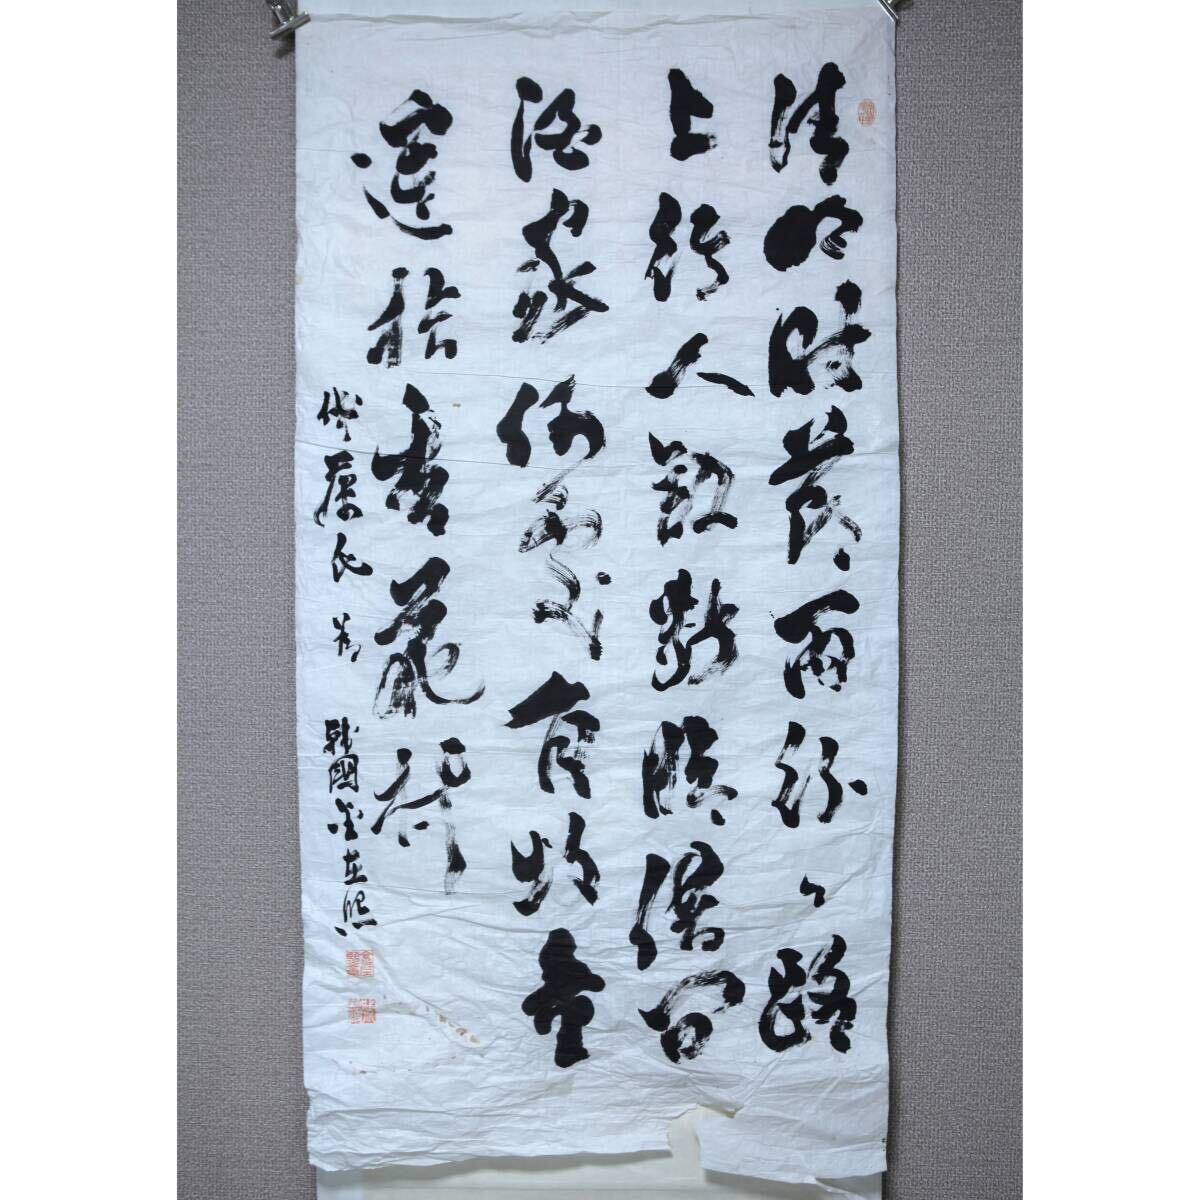 清明時節雨紛〻路
上行人欲斷魂借問
酒家何處有牧童
遙指杏花村
韓國金在熙